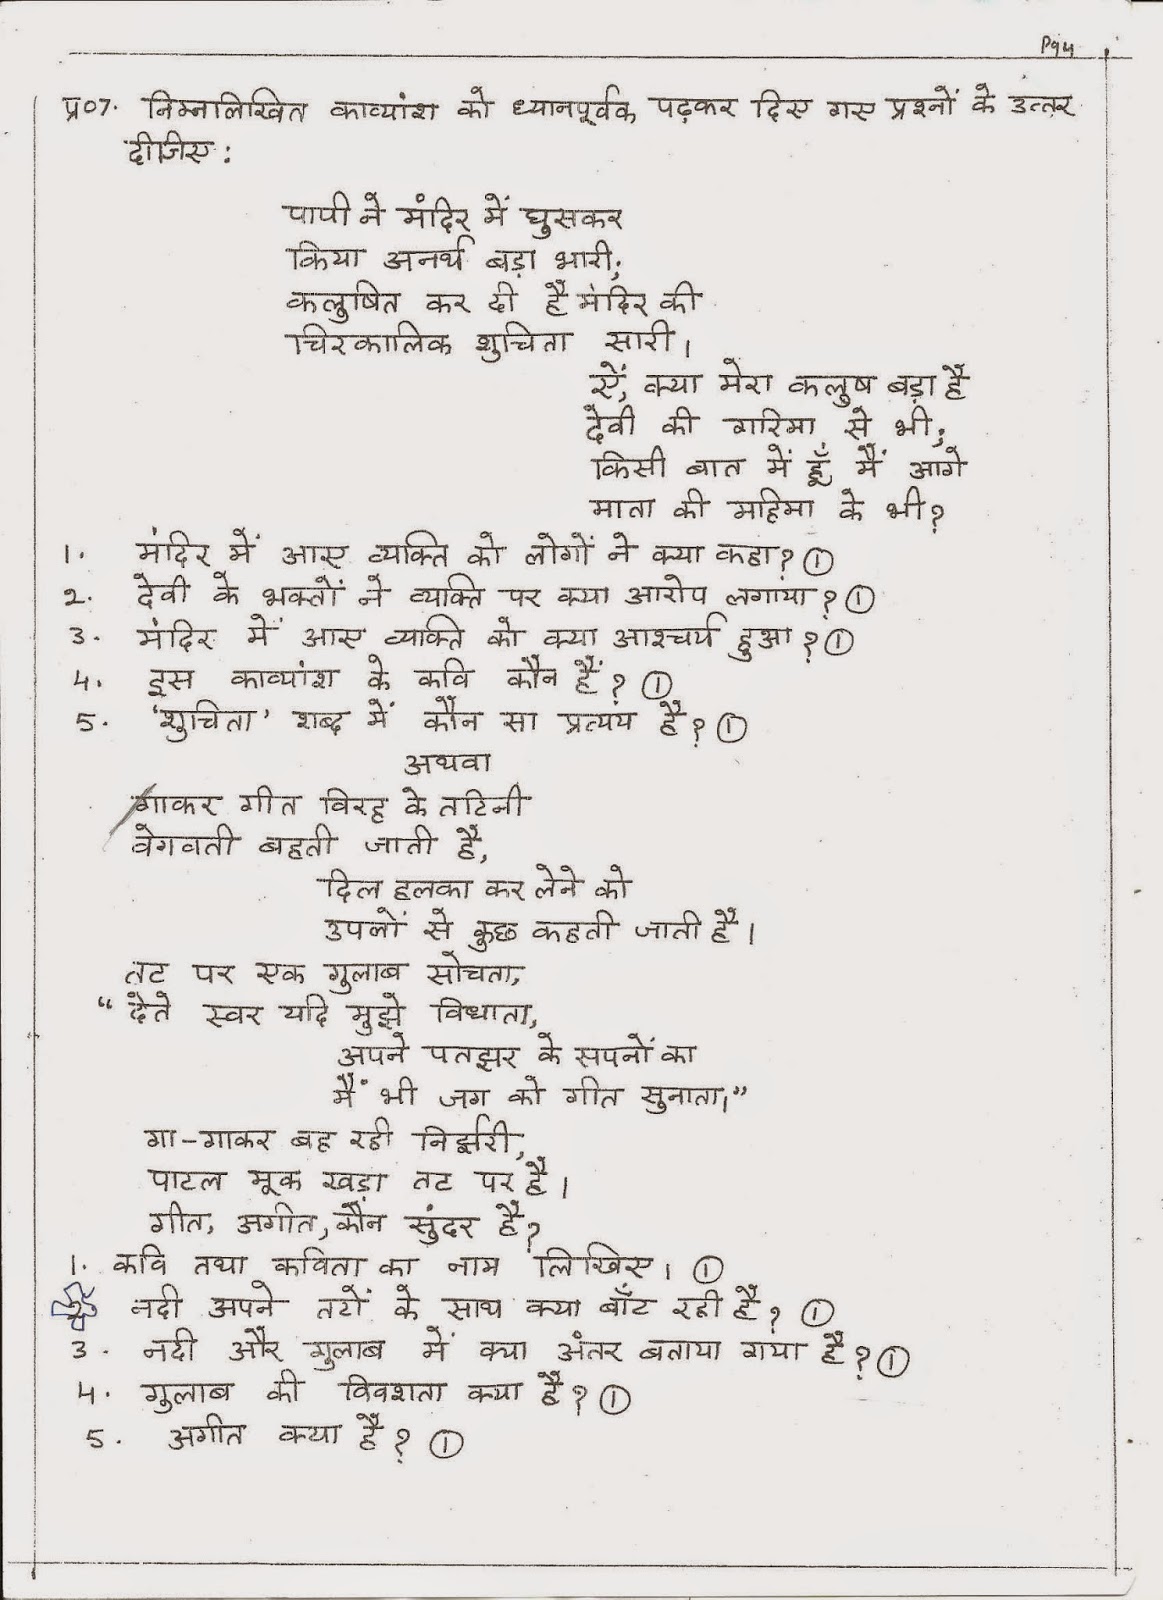 P94
प्र07. निम्नलिखित काव्यांश को ध्यानपूर्वक पढ़कर दिए गए प्रश्नों के उत्तर
दीजिए:
पापी ने मंदिर में घुसकर
किया अनर्थ बड़ा भारी;
कलुषित कर दी है मंदिर की
चिरकालिक शुचिता सारी।
ऐं, क्या मेरा कलुष बड़ा है
देवी की गरिमा से भी;
किसी बात में हूँ मैं आगे
माता की महिमा के भी?
1. मंदिर में आए व्यक्ति को लोगों ने क्या कहा? ①
2. देवी के भक्तों ने व्यक्ति पर क्या आरोप लगाया? ①
3. मंदिर में आए व्यक्ति को क्या आश्चर्य हुआ? ①
4. इस काव्यांश के कवि कौन हैं? ①
5. 'शुचिता' शब्द में कौन सा प्रत्यय है? ①
अथवा
गाकर गीत विरह के तटिनी
वेगवती बहती जाती है,
दिल हलका कर लेने को
उपलों से कुछ कहती जाती है।
तट पर एक गुलाब सोचता,
"देते स्वर यदि मुझे विधाता,
अपने पतझर के सपनों का
मैं भी जग को गीत सुनाता।"
गा-गाकर बह रही निर्झरी,
पाटल मूक खड़ा तट पर है।
गीत, अगीत, कौन सुंदर है?
1. कवि तथा कविता का नाम लिखिए। ①
नदी अपने तटों के साथ क्या बाँट रही है? ①
3. नदी और गुलाब में क्या अंतर बताया गया है? ①
4. गुलाब की विवशता क्या है? ①
5. अगीत क्या है? ①